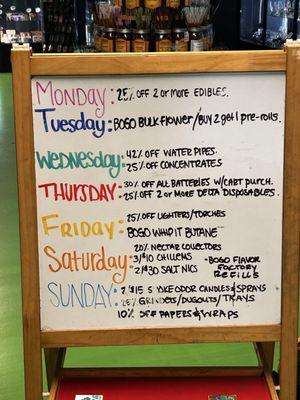 MONDAY: 25% OFF 2 OR MORE EDIBLES.
TUESDAY: BOGO BULK FLOWER/BUY 2 GET 1 PRE-ROLLS.
WEDNESDAY: 42% OFF WATER PIPES.
25% OFF CONCENTRATES
THURSDAY: 30% OFF ALL BATTERIES W/CART PURCH.
25% OFF 2 OR MORE DELTA DISPOSABLES.
FRIDAY: 25% OFF LIGHTERS/TORCHES
BOGO WHIP IT BUTANE
SATURDAY: 20% NECTAR COLLECTORS
3/$10 CHILLEMS
2/$30 SALT NICS
- BOGO FLAVOR FACTORY REFILLS
SUNDAY: 2/$15 SMOKE ODOR CANDLES & SPRAYS
25% GRINDERS/DUGOUTS/TRAYS
10% OFF PAPERS & WRAPS